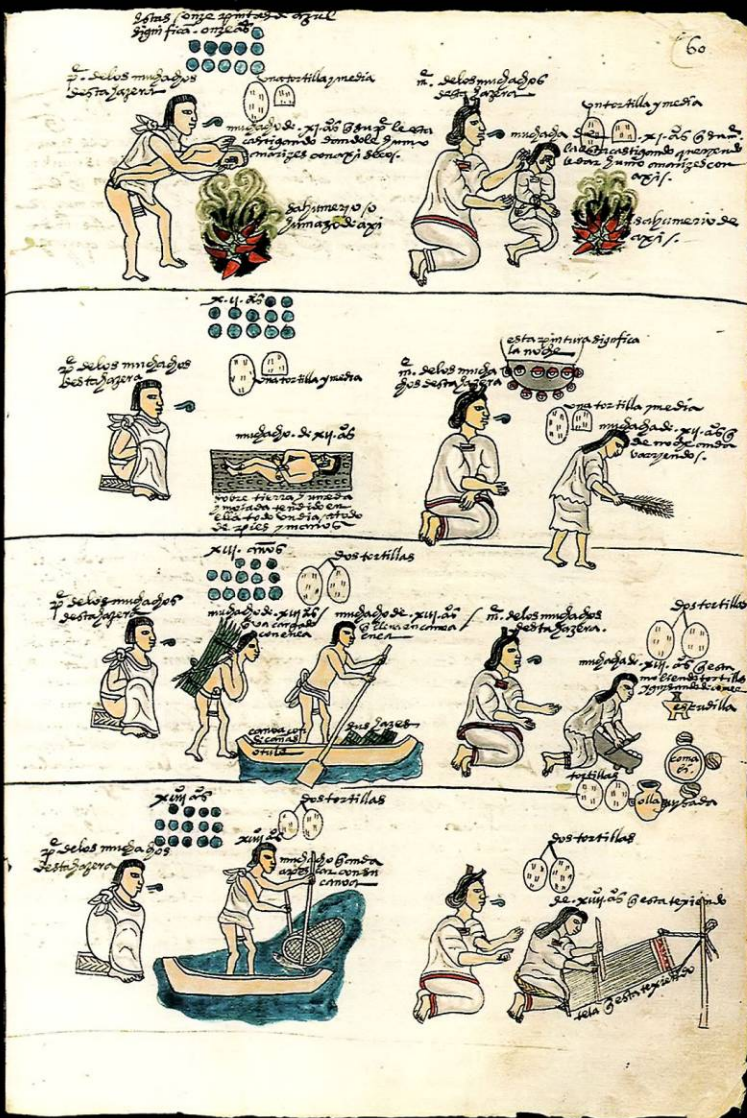 estas onze pintadas azul
significa. onze años
60
pe. delos muchachos
desta hazera
una tortilla y media
muchacho de. xi. años q̃ su pe. le esta
castigando dandole humo
a narizes con axi secos.
sahumerio so
humazo de axi
me. delos muchachos
desta hazera
una tortilla y media
muchacha de. xi. años q̃ su me.
la esta castigando queriendo
le dar humo a narizes con
axi.
sahumerio de
axi.
x.ii. años
pe. delos muchachos
desta hazera
una tortilla y media
muchacho. de xii. años
sobre tierra humeda
y mojada tendido en
ella todo un dia, atado
de pies y manos
esta pintura significa
la noche
me. delos mucha
chos desta hazera
una tortilla y media
muchacha de. xii. años q̃
de noche anda
varriendo.
xiii. años
dos tortillas
pe. delos muchachos
desta hazera
muchacho de. xiii. años
q̃ va cargado
con enea
muchacho de. xiii. años
q̃ lleva en canoa
enea
canoa con
sus hazes
de cañas
o tule
me. delos muchachos
desta hazera.
dos tortillas
muchacha de. xiii. años q̃ esta
moliendo tortillas
y guisando de comer
escudilla
comal
tortillas
olla guisada
xiiii años
dos tortillas
pe. delos muchachos
desta hazera
xiiii años
muchacho q̃ anda
a pescar con su
canoa
dos tortillas
de. xiiii. años q̃ esta texiendo
tela q̃ esta texiendo